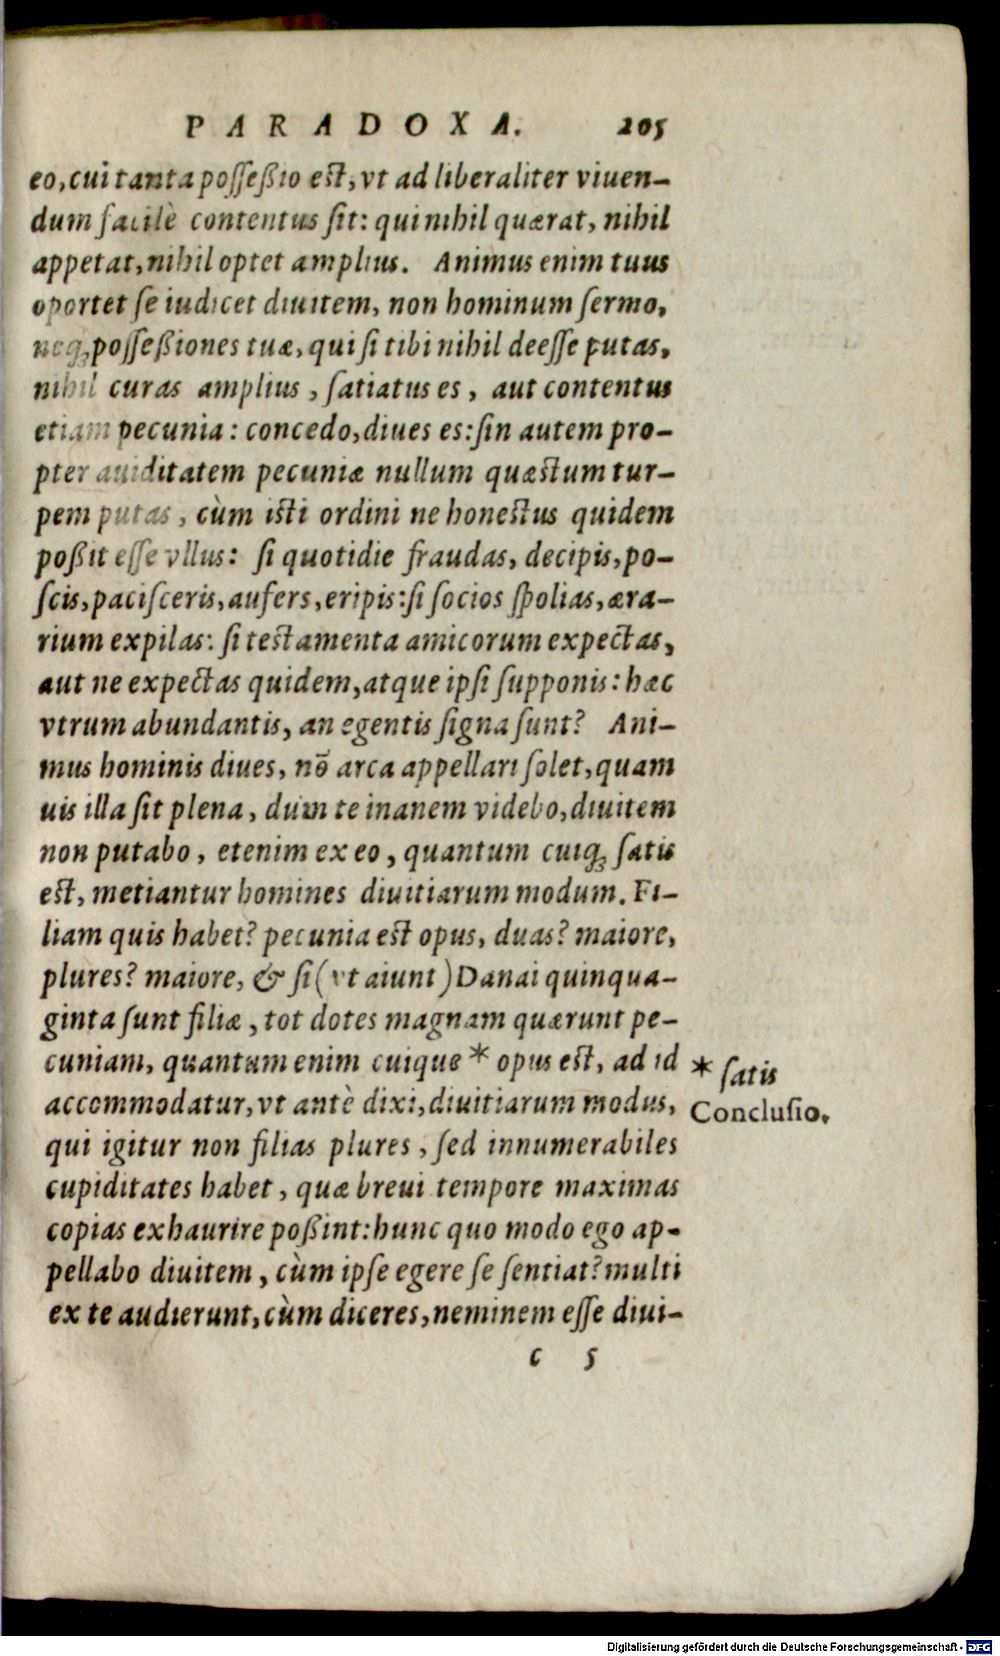 PARADOXA. 205
eo, cui tanta poſſeßio est, vt ad liberaliter viuen-
dum facilè contentus ſit: qui nihil quærat, nihil
appetat, nihil optet amplius. Animus enim tuus
oportet ſe iudicet diuitem, non hominum ſermo,
neq; poſſeßiones tuæ, qui ſi tibi nihil deeſſe putas,
nihil curas amplius, ſatiatus es, aut contentus
etiam pecunia: concedo, diues es: ſin autem pro-
pter auiditatem pecuniæ nullum quæstum tur-
pem putas, cùm isti ordini ne honestus quidem
poßit eſſe vllus: ſi quotidie fraudas, decipis, po-
ſcis, paciſceris, aufers, eripis: ſi ſocios ſpolias, æra-
rium expilas: ſi testamenta amicorum expectas,
aut ne expectas quidem, atque ipſi ſupponis: hæc
vtrum abundantis, an egentis ſigna ſunt? Ani-
mus hominis diues, nō arca appellari ſolet, quam
uis illa ſit plena, dum te inanem videbo, diuitem
non putabo, etenim ex eo, quantum cuiq; ſatis
est, metiantur homines diuitiarum modum. Fi-
liam quis habet? pecunia est opus, duas? maiore,
plures? maiore, & ſi (vt aiunt) Danai quinqua-
ginta ſunt filiæ, tot dotes magnam quærunt pe-
cuniam, quantum enim cuique * opus est, ad id
accommodatur, vt antè dixi, diuitiarum modus,
qui igitur non filias plures, ſed innumerabiles
cupiditates habet, quæ breui tempore maximas
copias exhaurire poßint: hunc quo modo ego ap-
pellabo diuitem, cùm ipſe egere ſe ſentiat? multi
ex te audierunt, cùm diceres, neminem eſſe diui-
c 5
* ſatis
Concluſio.
Digitalisierung gefördert durch die Deutsche Forschungsgemeinschaft - DFG